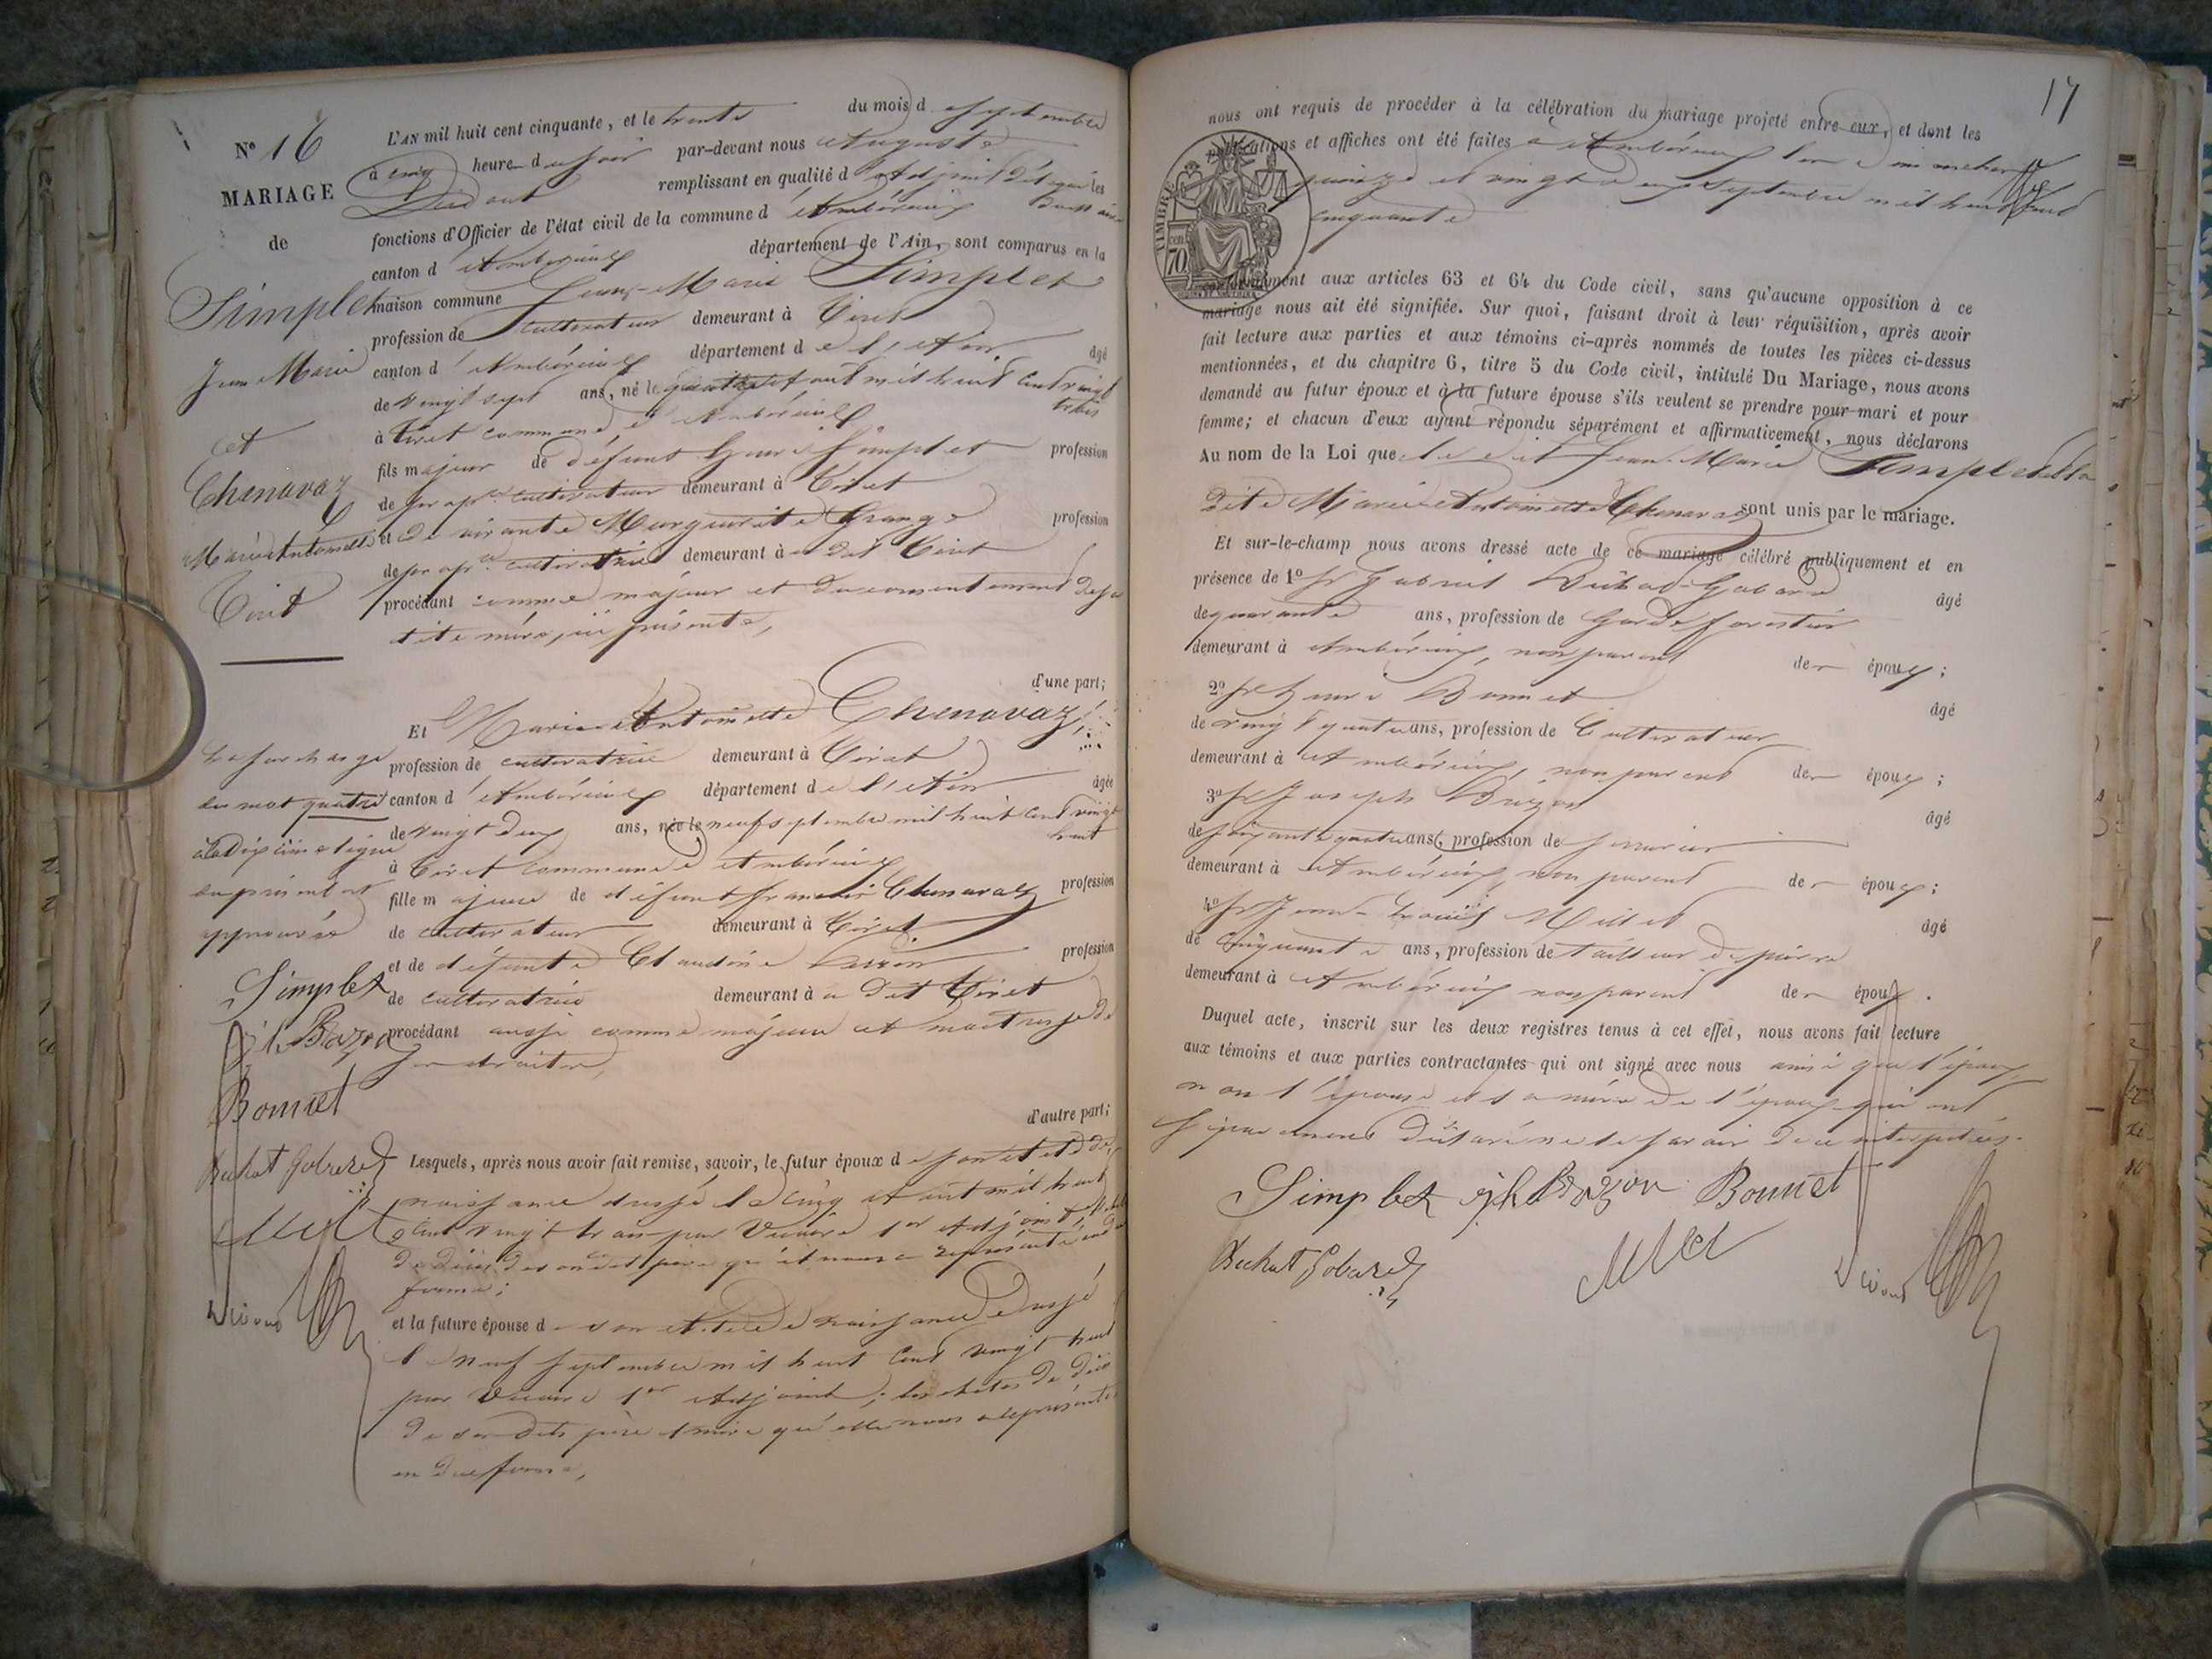 N° 16
MARIAGE
de
Simplet
Jean Marie
et
Chenavaz
Marie Antoinette
Tiret
L'AN mil huit cent cinquante, et le trente du mois d septembre
à cinq heure du soir par-devant nous Auguste
remplissant en qualité d'Adjoint délégué les
fonctions d'Officier de l'état civil de la commune d'Ambérieux
canton d'Ambérieux département de l'Ain, sont comparus en la
maison commune Jean-Marie Simplet
profession de cultivateur demeurant à Tiret
canton d'Ambérieux département de l'Ain âgé
de vingt sept ans, né le quatre août mil huit cent vingt
trois
à Tiret commune d'Ambérieux
fils majeur de défunt Simplet profession
de propre cultivateur demeurant à Tiret
et de vivante Marguerite Grange profession
de propre cultivatrice demeurant à dit Tiret
procédant comme majeur et du consentement de sa
dite mère, ici présente,
d'une part;
Et Marie Antoinette Chenavaz,
profession de cultivatrice demeurant à Tiret
canton d'Ambérieux département de l'Ain âgée
de vingt deux ans, née le neuf septembre mil huit cent vingt
huit
à Tiret commune d'Ambérieux
fille majeure de défunt francois Chenavaz profession
de cultivateur demeurant à Tiret
et de défunte Claudine profession
de cultivatrice demeurant à dit Tiret
procédant aussi comme majeure et maitresse de
ses droits,
d'autre part;
La surcharge
du mot quatre
à la dixième ligne
du présent
approuvée
Simplet
jh Bozon
Bonnet
Buchat Gobared
Millet
Lesquels, après nous avoir fait remise, savoir, le futur époux de son acte de
naissance dressé le cinq août mil huit
cent vingt trois par 1er Adjoint,
de décès de son dit père qu'il nous a représenté
forme;
et la future épouse de son acte de naissance dressé
le neuf septembre mil huit cent vingt huit
par 1er Adjoint; les actes de décès
de ses dits père et mère qu'elle nous a représentés
en due forme,
17
nous ont requis de procéder à la célébration du mariage projeté entre eux, et dont les
publications et affiches ont été faites à Ambérieux les dimanches
quinze et vingt deux septembre mil huit cent
cinquante
TIMBRE
70
conformément aux articles 63 et 64 du Code civil, sans qu'aucune opposition à ce
mariage nous ait été signifiée. Sur quoi, faisant droit à leur réquisition, après avoir
fait lecture aux parties et aux témoins ci-après nommés de toutes les pièces ci-dessus
mentionnées, et du chapitre 6, titre 5 du Code civil, intitulé Du Mariage, nous avons
demandé au futur époux et à la future épouse s'ils veulent se prendre pour mari et pour
femme; et chacun d'eux ayant répondu séparément et affirmativement, nous déclarons
Au nom de la Loi que le dit Jean-Marie Simplet et la
dite Marie Antoinette Chenavaz sont unis par le mariage.
Et sur-le-champ nous avons dressé acte de ce mariage célébré publiquement et en
présence de 1° Sr Gabriel Buchat-Gobared âgé
de quarante ans, profession de Garde forestier
demeurant à Ambérieux, non parent des époux;
2° Sr Bonnet âgé
de vingt quatre ans, profession de Cultivateur
demeurant à Ambérieux, non parent des époux;
3° Sr Joseph Bozon âgé
de soixante quatre ans, profession de
demeurant à Ambérieux, non parent des époux;
4° Sr Jean-Louis Millet âgé
de cinquante ans, profession de tailleur de pierre
demeurant à Ambérieux non parent des époux.
Duquel acte, inscrit sur les deux registres tenus à cet effet, nous avons fait lecture
aux témoins et aux parties contractantes qui ont signé avec nous ainsi que l'époux
non l'épouse et la mère de l'époux qui ont
séparément déclaré ne le savoir de ce interpellées.
Simplet jh Bozon Bonnet
Buchat Gobared Millet